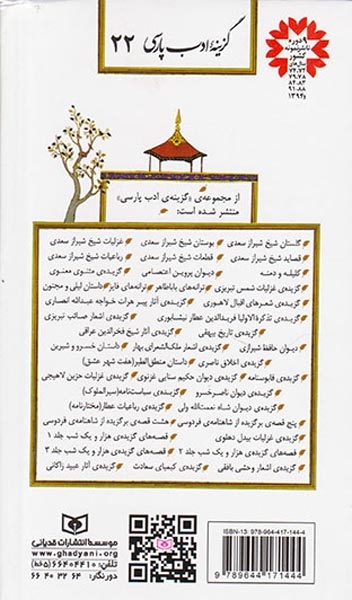 گزینهٔ ادب پارسی ۲۲
۹ دوره
ناشر نمونه
کشور
سال‌های
۷۴، ۷۲
۷۹، ۷۸
۸۴، ۸۳
۹۱، ۸۸
و ۱۳۹۴
از مجموعه‌ی «گزینه‌ی ادب پارسی»
منتشر شده است:
گلستان شیخ شیراز سعدی بوستان شیخ شیراز سعدی غزلیات شیخ شیراز سعدی
قصاید شیخ شیراز سعدی قطعات شیخ شیراز سعدی رباعیات شیخ شیراز سعدی
کلیله و دمنه دیوان پروین اعتصامی گزیده‌ی مثنوی معنوی
گزیده‌ی غزلیات شمس تبریزی ترانه‌های باباطاهر ترانه‌های فایز داستان لیلی و مجنون
گزیده‌ی شعرهای اقبال لاهوری گزیده‌ی آثار پیر هرات خواجه عبدالله انصاری
گزیده‌ی تذکرةالاولیا فریدالدین عطار نیشابوری گزیده‌ی اشعار صائب تبریزی
گزیده‌ی تاریخ بیهقی گزیده‌ی آثار شیخ فخرالدین عراقی
دیوان حافظ شیرازی گزیده‌ی اشعار ملک‌الشعرای بهار داستان خسرو و شیرین
گزیده‌ی اخلاق ناصری داستان منطق‌الطیر (هفت شهر عشق)
گزیده‌ی قابوسنامه گزیده‌ی دیوان حکیم سنایی غزنوی گزیده‌ی غزلیات حزین لاهیجی
گزیده‌ی دیوان ناصرخسرو گزیده‌ی سیاست‌نامه (سیرالملوک)
گزیده‌ی دیوان شاه نعمت‌الله ولی گزیده‌ی رباعیات عطار (مختارنامه)
پنج قصه‌ی برگزیده از شاهنامه‌ی فردوسی هشت قصه‌ی برگزیده از شاهنامه‌ی فردوسی
گزیده‌ی غزلیات بیدل دهلوی قصه‌های گزیده‌ی هزار و یک شب جلد ۱
قصه‌های گزیده‌ی هزار و یک شب جلد ۲ قصه‌های گزیده‌ی هزار و یک شب جلد ۳
گزیده‌ی اشعار وحشی بافقی گزیده‌ی کیمیای سعادت گزیده‌ی آثار عبید زاکانی
موسسه انتشارات قدیانی
www.ghadyani.org
تلفن: ۶۶۴۰۴۴۱۰ (۶۵ خط)
دورنگار: ۶۶۴۰۳۲۶۴
ISBN-13: 978-964-417-144-4
9 789644 171444